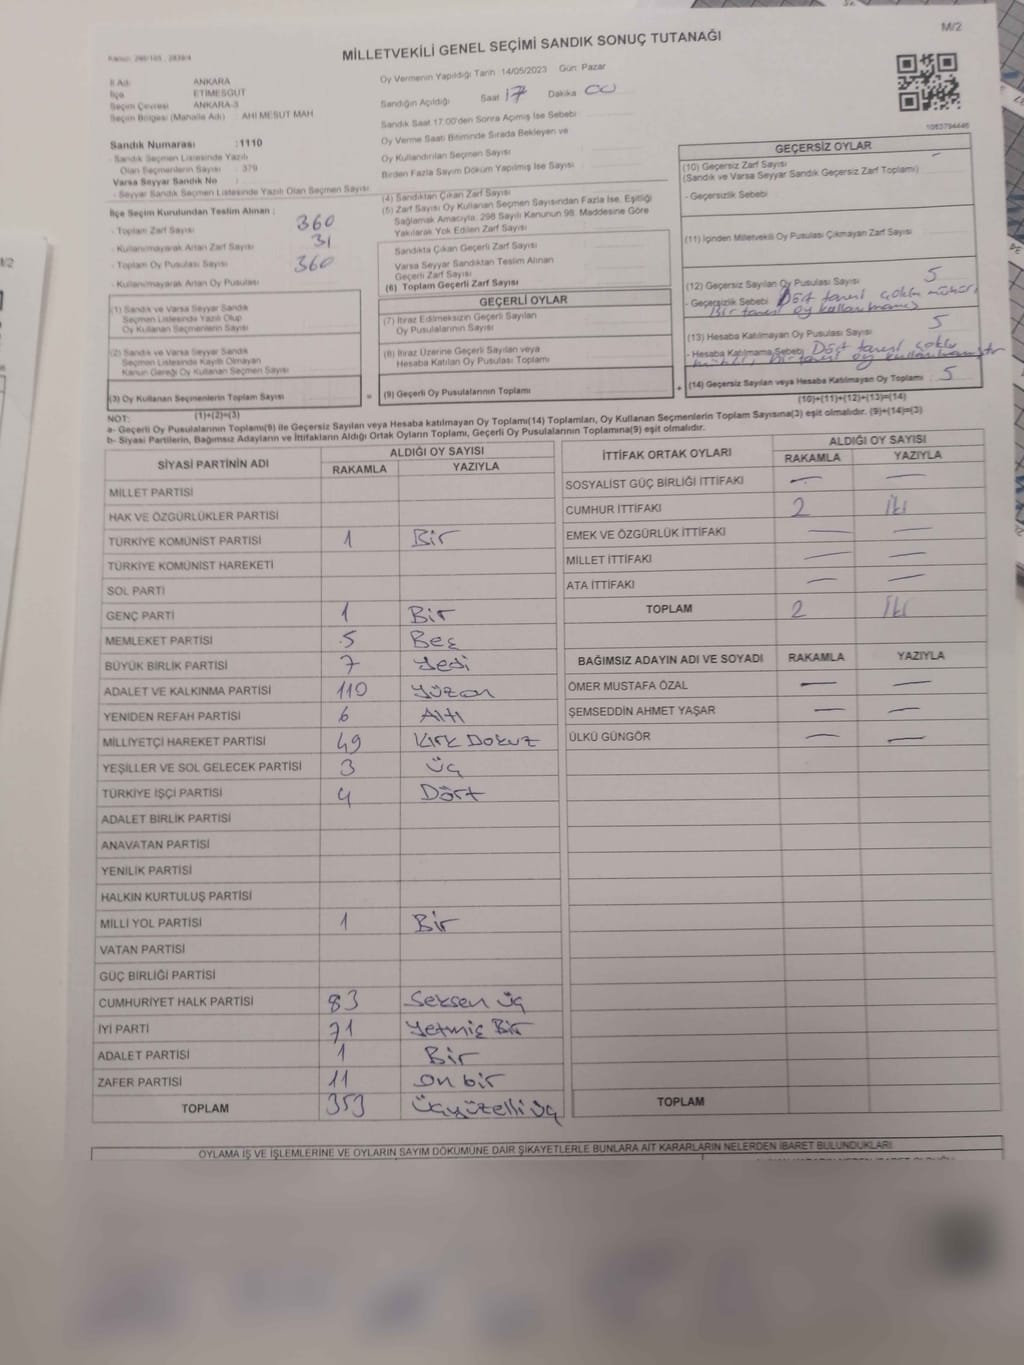 M/2
MİLLETVEKİLİ GENEL SEÇİMİ SANDIK SONUÇ TUTANAĞI
İl Adı ANKARA
İlçe ETİMESGUT
Seçim Çevresi ANKARA-3
Seçim Bölgesi (Mahalle Adı) : AHİ MESUT MAH
Oy Vermenin Yapıldığı Tarih 14/05/2023 Gün: Pazar
Sandığın Açıldığı Saat 17 Dakika 00
Sandık Saat 17.00'den Sonra Açılmış İse Sebebi
Oy Verme Saati Bitiminde Sırada Bekleyen ve
Oy Kullandırılan Seçmen Sayısı
Birden Fazla Sayım Döküm Yapılmış İse Sayısı
Sandık Numarası :1110
- Sandık Seçmen Listesinde Yazılı
Olan Seçmenlerin Sayısı : 379
Varsa Seyyar Sandık No :
- Seyyar Sandık Seçmen Listesinde Yazılı Olan Seçmen Sayısı
İlçe Seçim Kurulundan Teslim Alınan ;
- Toplam Zarf Sayısı 360
- Kullanılmayarak Artan Zarf Sayısı 31
- Toplam Oy Pusulası Sayısı 360
- Kullanılmayarak Artan Oy Pusulası
(1) Sandık ve Varsa Seyyar Sandık
Seçmen Listesinde Yazılı Olup
Oy Kullanan Seçmenlerin Sayısı
(2) Sandık ve Varsa Seyyar Sandık
Seçmen Listesinde Kayıtlı Olmayan
Kanun Gereği Oy Kullanan Seçmenlerin Sayısı
(3) Oy Kullanan Seçmenlerin Toplam Sayısı =
(1)+(2)=(3)
(4) Sandıktan Çıkan Zarf Sayısı
(5) Zarf Sayısı Oy Kullanan Seçmen Sayısından Fazla İse, Eşitliği
Sağlamak Amacıyla; 298 Sayılı Kanunun 98. Maddesine Göre
Yakılarak Yok Edilen Zarf Sayısı
Sandıkta Çıkan Geçerli Zarf Sayısı
Varsa Seyyar Sandıktan Teslim Alınan
Geçerli Zarf Sayısı
(6) Toplam Geçerli Zarf Sayısı
GEÇERLİ OYLAR
(7) İtiraz Edilmeksizin Geçerli Sayılan
Oy Pusulalarının Sayısı
(8) İtiraz Üzerine Geçerli Sayılan veya
Hesaba Katılan Oy Pusulası Toplamı
(9) Geçerli Oy Pusulalarının Toplamı +
GEÇERSİZ OYLAR
(10) Geçersiz Zarf Sayısı -
(Sandık ve Varsa Seyyar Sandık Geçersiz Zarf Toplamı)
- Geçersizlik Sebebi
(11) İçinden Milletvekili Oy Pusulası Çıkmayan Zarf Sayısı
(12) Geçersiz Sayılan Oy Pusulası Sayısı 5
- Geçersizlik Sebebi Dört tanesi çoklu mühür,
Bir tanesi oy kullanılmamış
(13) Hesaba Katılmayan Oy Pusulası Sayısı 5
- Hesaba Katılmama Sebebi Dört tanesi çoklu
mühür, bir tanesi oy kullanılmamıştır
(14) Geçersiz Sayılan veya Hesaba Katılmayan Oy Toplamı 5
(10)+(11)+(12)+(13)=(14)
NOT:
a- Geçerli Oy Pusulalarının Toplamı(9) ile Geçersiz Sayılan veya Hesaba katılmayan Oy Toplamı(14) Toplamları, Oy Kullanan Seçmenlerin Toplam Sayısına(3) eşit olmalıdır. (9)+(14)=(3)
b- Siyasi Partilerin, Bağımsız Adayların ve İttifakların Aldığı Ortak Oyların Toplamı, Geçerli Oy Pusulalarının Toplamına(9) eşit olmalıdır.
SİYASİ PARTİNİN ADI ALDIĞI OY SAYISI
RAKAMLA YAZIYLA
MİLLET PARTİSİ
HAK VE ÖZGÜRLÜKLER PARTİSİ
TÜRKİYE KOMÜNİST PARTİSİ 1 Bir
TÜRKİYE KOMÜNİST HAREKETİ
SOL PARTİ
GENÇ PARTİ 1 Bir
MEMLEKET PARTİSİ 5 Beş
BÜYÜK BİRLİK PARTİSİ 7 Yedi
ADALET VE KALKINMA PARTİSİ 110 Yüzon
YENİDEN REFAH PARTİSİ 6 Altı
MİLLİYETÇİ HAREKET PARTİSİ 49 Kırk Dokuz
YEŞİLLER VE SOL GELECEK PARTİSİ 3 Üç
TÜRKİYE İŞÇİ PARTİSİ 4 Dört
ADALET BİRLİK PARTİSİ
ANAVATAN PARTİSİ
YENİLİK PARTİSİ
HALKIN KURTULUŞ PARTİSİ
MİLLİ YOL PARTİSİ 1 Bir
VATAN PARTİSİ
GÜÇ BİRLİĞİ PARTİSİ
CUMHURİYET HALK PARTİSİ 83 Seksen üç
İYİ PARTİ 71 Yetmiş Bir
ADALET PARTİSİ 1 Bir
ZAFER PARTİSİ 11 On bir
TOPLAM 353 Üçyüzelli üç
İTTİFAK ORTAK OYLARI ALDIĞI OY SAYISI
RAKAMLA YAZIYLA
SOSYALİST GÜÇ BİRLİĞİ İTTİFAKI — —
CUMHUR İTTİFAKI 2 İki
EMEK VE ÖZGÜRLÜK İTTİFAKI — —
MİLLET İTTİFAKI — —
ATA İTTİFAKI — —
TOPLAM 2 İki
BAĞIMSIZ ADAYIN ADI VE SOYADI RAKAMLA YAZIYLA
ÖMER MUSTAFA ÖZAL — —
ŞEMSEDDİN AHMET YAŞAR — —
ÜLKÜ GÜNGÖR — —
TOPLAM
OYLAMA İŞ VE İŞLEMLERİNE VE OYLARIN SAYIM DÖKÜMÜNE DAİR ŞİKAYETLERLE BUNLARA AİT KARARLARIN NELERDEN İBARET BULUNDUKLARI